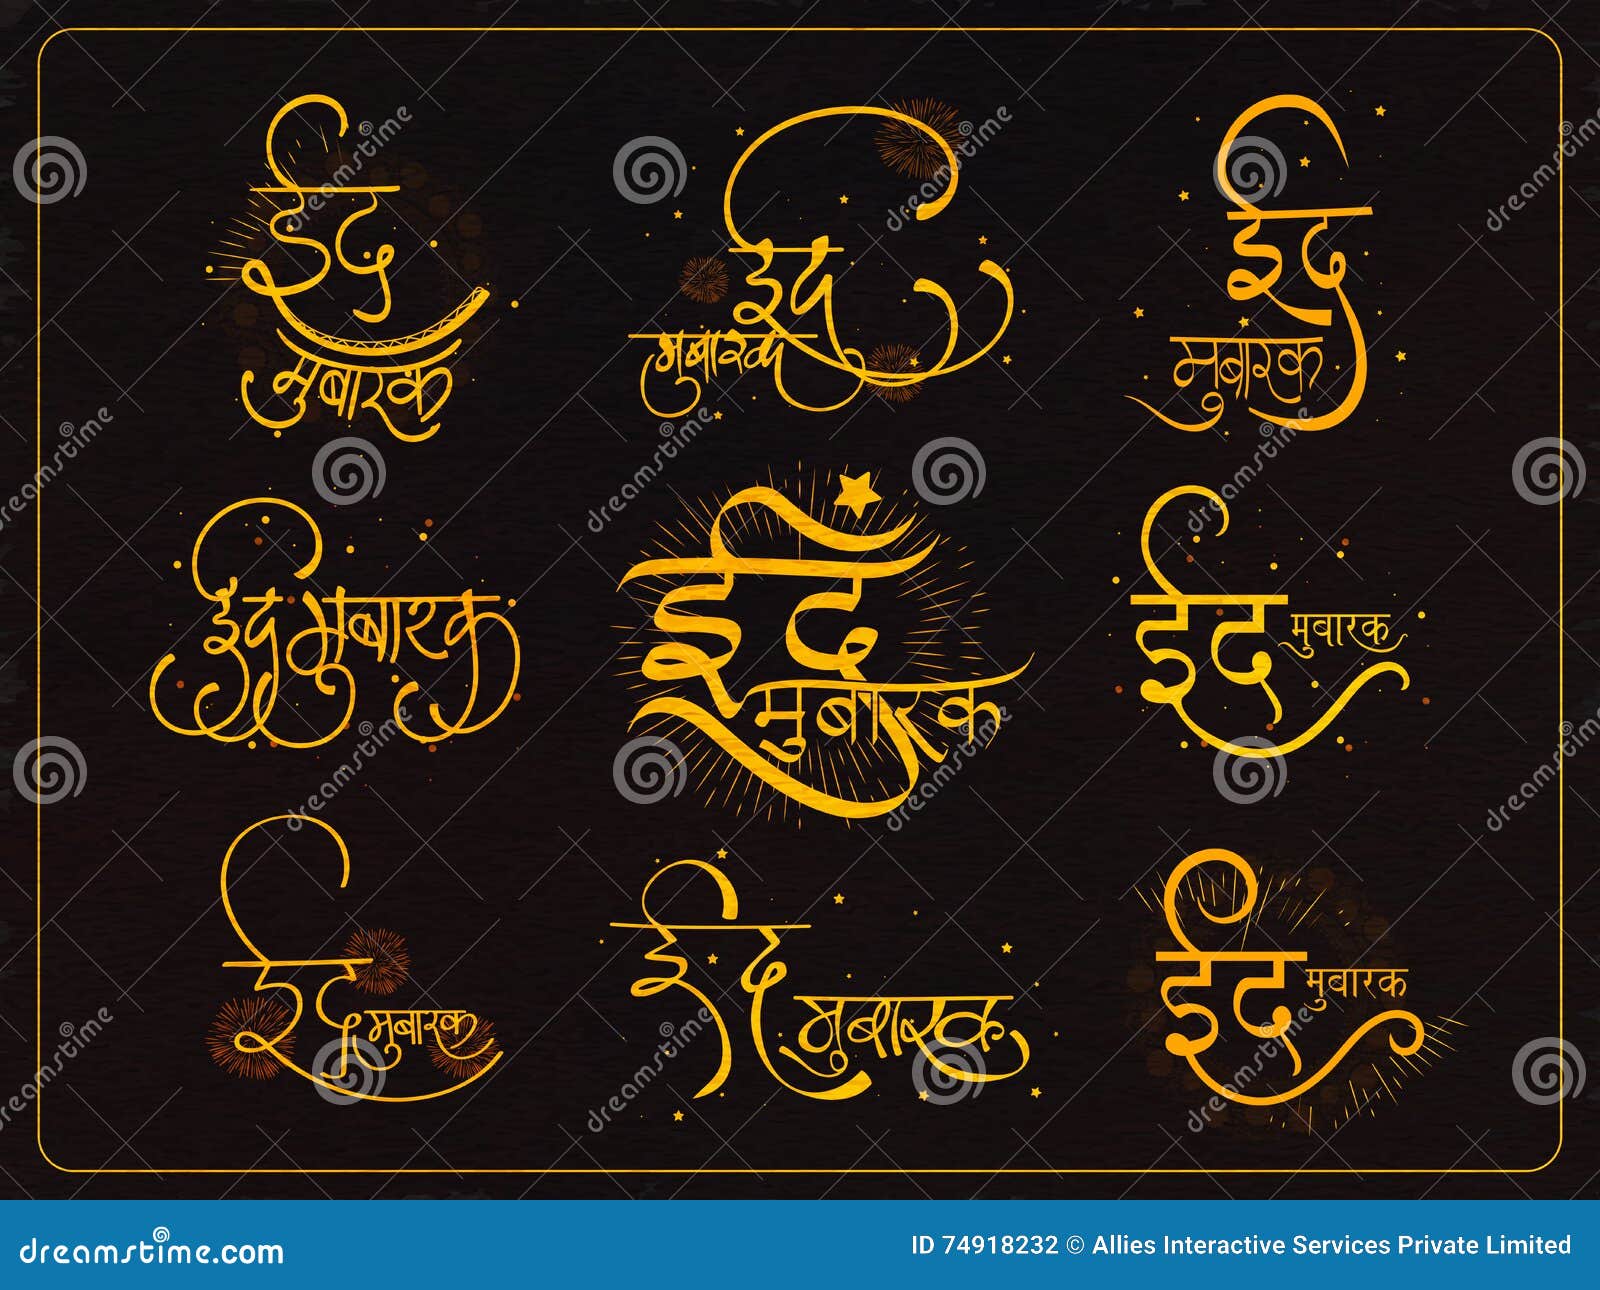 ईद
मुबारक
ईद
मुबारक
ईद
मुबारक
ईद मुबारक
ईद
मुबारक
ईद मुबारक
ईद मुबारक
ईद मुबारक
ईद मुबारक
dreamstime.com
ID 74918232 © Allies Interactive Services Private Limited